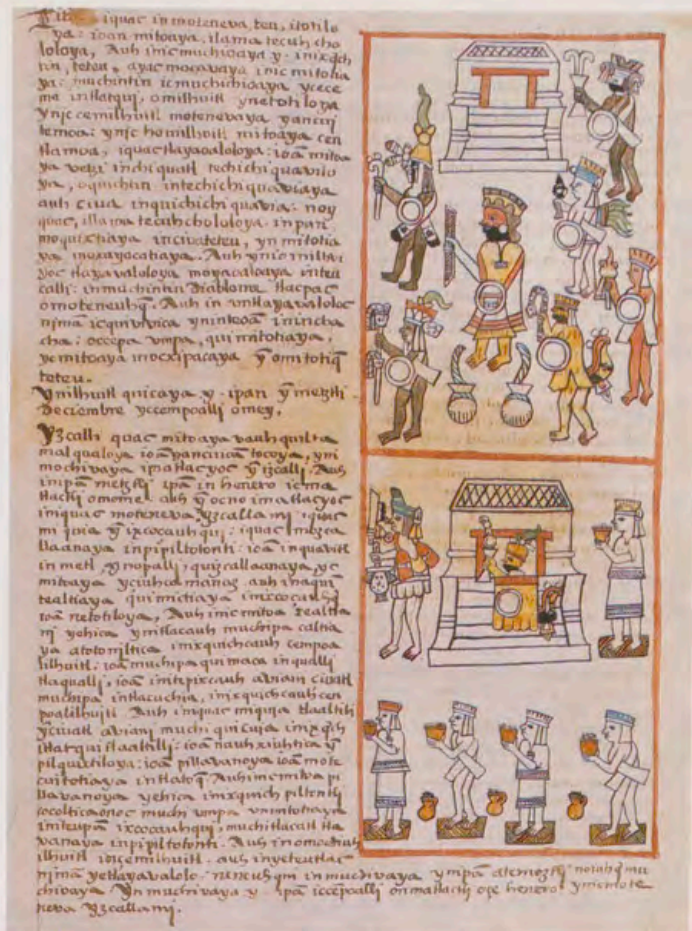 Tititl iquac in moteneva, teu, itotilo
ya: ioan mitoaya, ilama tecuh cho
loloya, Auh inic muchioaya y. inixqch
tin, teteu, ayac mocavaya inic mitotia
ya: muchintin icmuchichioaya ycece
me intlatqui, omilhuitl ynetotiloya
ynic cemilhuitl motenevaya yancui
temoa: ynic homilhuitl mitoaya cen
tlamoa, iquac tlayaoaloloya: ioã mitoa
ya vetzi inchiquatl techichiquavilo
ya, oquichtin intechichiquaviaya
auh ciua inquichichiquavia: no y
quac, illama tecuhchololoya. in pan
moquixtiaya inciuateteu, yn mitotia
ya moxayocatiaya. Auh ynic millac
yoc tlayavaloloya moyacaloaya inteu
calli: in muchintin Diablome tlacpac
omoteneuhq. Auh in ontlayavaloloc
nimã icquivivica yninteoã inincha
cha: occepa umpa, qui mitotiaya,
ye mitoaya inocxipacaya ỹ omitotiq
teteu.
Ynilhuitl quicaya y. ipan ỹ meztli
Deciembre yccempoalli omey.
Yzcalli quac mitoaya vauhquilta
malqualoya ioã yancuicã tocoya, yni
mochivaya ipatlacyoc ỹ izcalli. Auh
inipã metztli ipã in henero ic ma
tlactli omome. auh ỹ oc no imatlacyoc
iniquac moteneva yzcallami, iquac
miquia ỹ ixcocauhqui: iquac mozca
llaanaya inpipiltotonti: ioã inquavitl
in metl ỹ nopalli, quizcallaanaya, yc
mitoaya yciuhca manaz. auh inaquin
tealtiaya quimictiaya inixcocauhq
ioã netotiloya, Auh inic mitoa tealtia
ni yehica ynitlacauh muchipa caltia
ya atotoniltica inixquichcauh cempoa
lilhuitl: ioã muchipa quimaca inqualli
tlaqualli, ioã intepixcauh aviani ciuatl
muchipa intlacuchia, inixquichcauh cen
poalilhuitl. Auh iniquac miquia tlaaltilli
ỹ ciuatl aviani muchi quicuia inixqch
itlatqui tlaaltilli: ioã nauhxiuhtica ỹ
pilquixtiloya: ioã pillavanoya ioã mote
cuitotiaya intlatoq. Auh inic mitoa pi
llavanoya yehica inixquich piltontli
cocolticaonoc muchi umpa vmintotiaya
initeupã ixcocauhqui, muchitlacatl tla
vanaya inpipiltotonti. Auh in omochiuh
ilhuitl ioicemilhuitl. auh inyeteutlac
nimã yetlayavalolo: neneuhqui inmuchivaya ympã atemoztli noiuhq mu
chivaya yn muchivaya y. ipã iccẽpoalli onmatlactli oçe henero ynicmote
neva yzcallami.